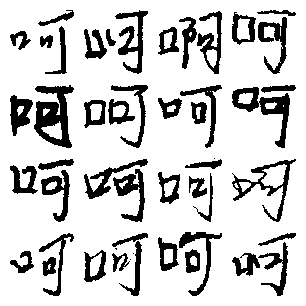 呵呵啊呵
呵呵呵呵
呵呵呵呵
呵呵呵呵